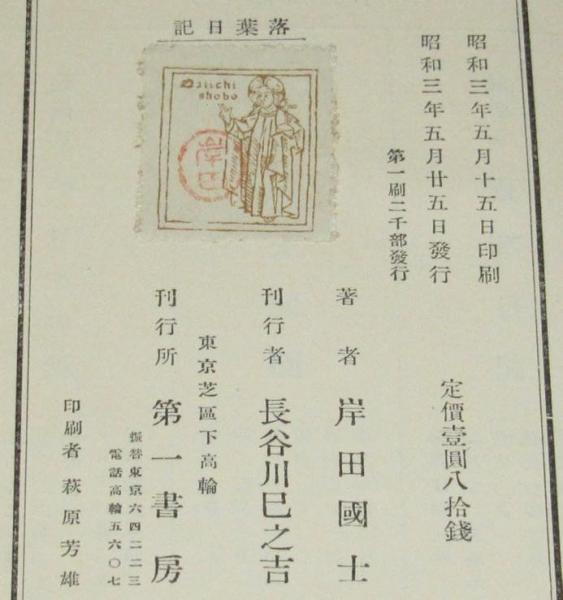 落葉日記
Daiichi
shobo
昭和三年五月十五日印刷
昭和三年五月廿五日發行
第一刷二千部發行
定價壹圓八拾錢
著者 岸田國士
刊行者 長谷川巳之吉
東京芝區下高輪
刊行所 第一書房
振替東京六四二二三
電話高輪五六〇七
印刷者 萩原芳雄